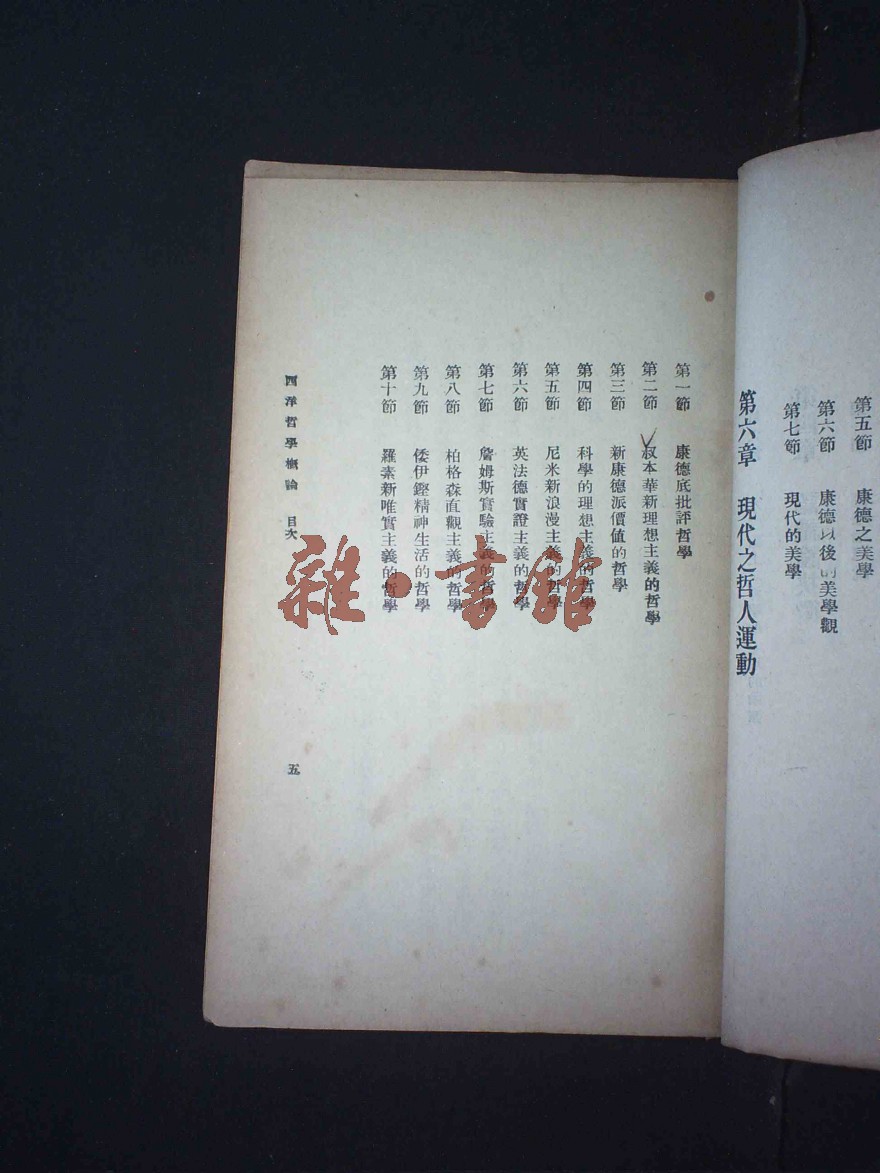 第五節 康德之美學
第六節 康德以後的美學觀
第七節 現代的美學
第六章 現代之哲人運動
第一節 康德底批評哲學
第二節 叔本華新理想主義的哲學
第三節 新康德派價值的哲學
第四節 科學的理想主義的哲學
第五節 尼米新浪漫主義的哲學
第六節 英法德實證主義的哲學
第七節 詹姆斯實驗主義的哲學
第八節 柏格森直觀主義的哲學
第九節 倭伊鏗精神生活的哲學
第十節 羅素新唯實主義的哲學
西洋哲學概論 目次 五
雜書館